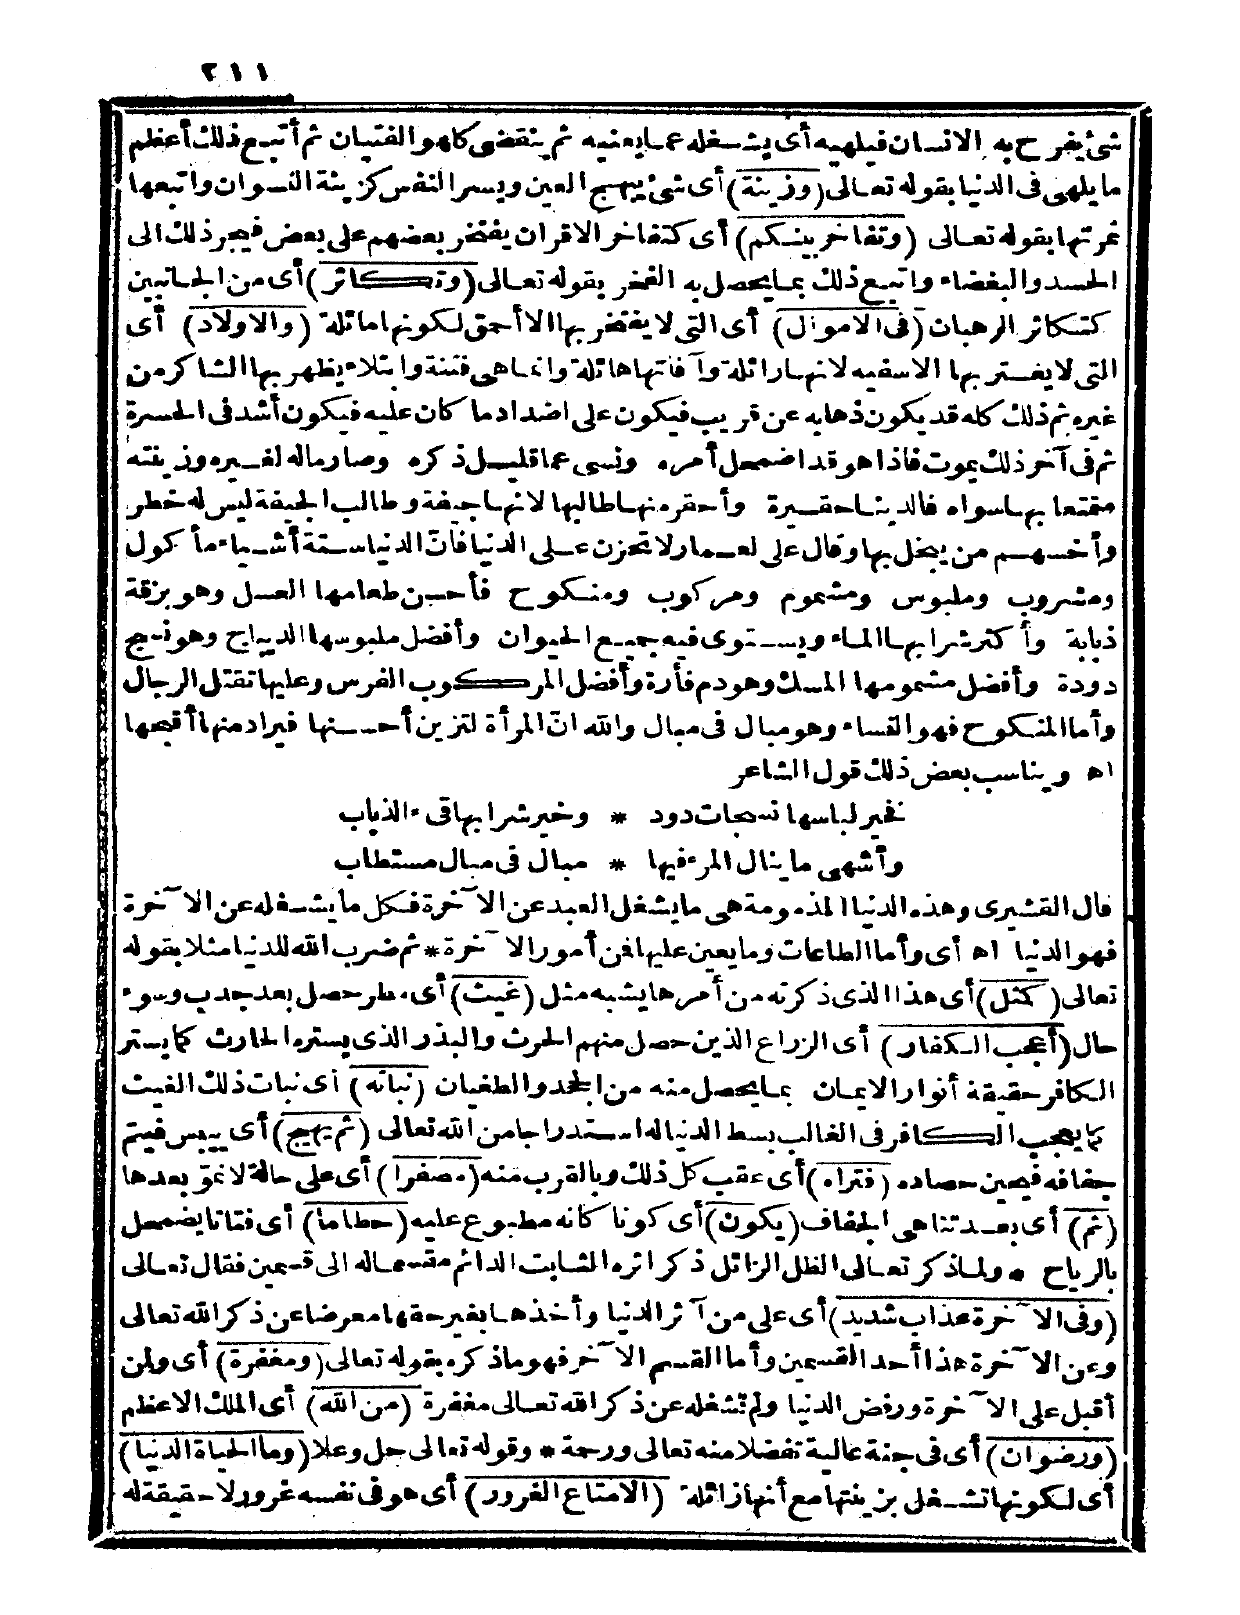 ٢١١
شئ يفرح به الانسان فيلهيه أى يشغله عما يعنيه ثم ينقضى كلهو الفتيان ثم أتبع ذلك أعظم
ما يلهى فى الدنيا بقوله تعالى (وزينة) أى شئ يبهج العين ويسر النفس كزينة النسوان واتبعها
ثمرتها بقوله تعالى (وتفاخر بينكم) أى كتفاخر الاقران يفتخر بعضهم على بعض فيجر ذلك الى
الحسد والبغضاء واتبع ذلك بما يحصل به الفخر بقوله تعالى (وتكاثر) أى من الجانبين
كتكاثر الرهبان (فى الاموال) أى التى لا يفتخر بها الا أحمق لكونها مائلة (والاولاد) أى
التى لا يغتر بها الا سفيه لانها زائلة وآفاتها هائلة وانما هى فتنة وابتلاء يظهر بها الشاكر من
غيره ثم ذلك كله قد يكون ذهابه عن قريب فيكون على اضداد ما كان عليه فيكون أشد فى الحسرة
ثم فى آخر ذلك يموت فاذا هو قد اضمحل أمره ونسى عما قليل ذكره وصار ماله لغيره وزينته
متمتعا بها سواه فالدنيا حقيرة وأحقر منها طالبها لانها جيفة وطالب الجيفة ليس له خطر
وأخسهم من يبخل بها وقال على لعمار لا تحزن على الدنيا فانّ الدنيا ستة أشياء مأكول
ومشروب وملبوس ومشموم ومركوب ومنكوح فأحسن طعامها العسل وهو بزقة
ذبابة وأكثر شرابها الماء ويستوى فيه جميع الحيوان وأفضل ملبوسها الديباج وهو نسج
دودة وأفضل مشمومها المسك وهو دم فأرة وأفضل المركوب الفرس وعليها تقتل الرجال
وأما المنكوح فهو النساء وهو مبال فى مبال والله انّ المرأة لتزين أحسنها فيراد منها أقبحها
اه ويناسب بعض ذلك قول الشاعر
فخير لباسها نسجات دود * وخير شرابها قىء الذباب
وأشهى ما ينال المرء فيها * مبال فى مبال مستطاب
قال القشيرى وهذه الدنيا المذمومة هى ما يشغل العبد عن الآخرة فكل ما يشغله عن الآخرة
فهو الدنيا اه أى وأما الطاعات وما يعين عليها فمن أمور الآخرة * ثم ضرب الله للدنيا مثلا بقوله
تعالى (كمثل) أى هذا الذى ذكرته من أمرها يشبه مثل (غيث) أى مطر حصل بعد جدب وسوء
حال (أعجب الكفار) أى الزراع الذين حصل منهم الحرث والبذر الذى يستره الحارث كما يستر
الكافر حقيقة أنوار الايمان بما يحصل منه من الجحد والطغيان (نباته) أى نبات ذلك الغيث
كما يعجب الكافر فى الغالب بسط الدنيا له استدراجا من الله تعالى (ثم يهيج) أى ييبس فيتم
جفافه فيحين حصاده (فتراه) أى عقب كل ذلك وبالقرب منه (مصفرا) أى على حالة لا نموّ بعدها
(ثم) أى بعد تناهى الجفاف (يكون) أى كونا كانه مطبوع عليه (حطاما) أى فتاتا يضمحل
بالرياح * ولما ذكر تعالى الظل الزائل ذكر اثره الثابت الدائم مقسما له الى قسمين فقال تعالى
(وفى الآخرة عذاب شديد) أى على من آثر الدنيا وأخذها بغير حقها معرضا عن ذكر الله تعالى
وعن الآخرة هذا أحد القسمين وأما القسم الآخر فهو ما ذكره بقوله تعالى (ومغفرة) أى ولمن
أقبل على الآخرة ورفض الدنيا ولم تشغله عن ذكر الله تعالى مغفرة (من الله) أى الملك الاعظم
(ورضوان) أى فى جنة عالية تفضلا منه تعالى ورحمة * وقوله تعالى جل وعلا (وما الحياة الدنيا)
أى لكونها تشغل بزينتها مع أنها زائلة (الا متاع الغرور) أى هو فى نفسه غرور لا حقيقة له